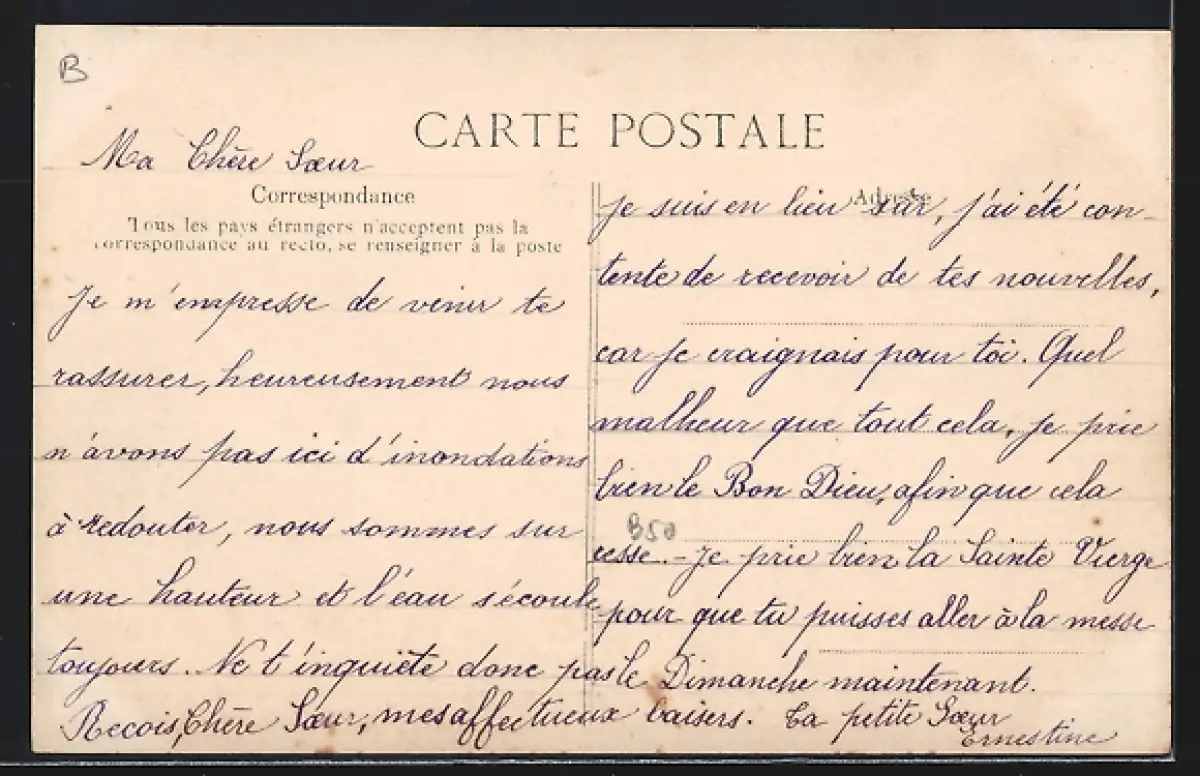 B
CARTE POSTALE
Ma Chère Sœur
Correspondance
Tous les pays étrangers n'acceptent pas la
correspondance au recto, se renseigner à la poste
Je m'empresse de venir te
rassurer, heureusement nous
n'avons pas ici d'inondations
à redouter, nous sommes sur
une hauteur et l'éau s'écoule
toujours. Ne t'inquiète donc pas
Adresse
je suis en lieu sûr, j'ai été con-
tente de recevoir de tes nouvelles,
car je craignais pour toi. Quel
malheur que tout cela, je prie
bien le Bon Dieu, afin que cela
B50
cesse. - Je prie bien la Sainte Vierge
pour que tu puisses aller à la messe
le Dimanche maintenant.
Recois, Chère Sœur, mes affectueux baisers. Ta petite Sœur
Ernestine